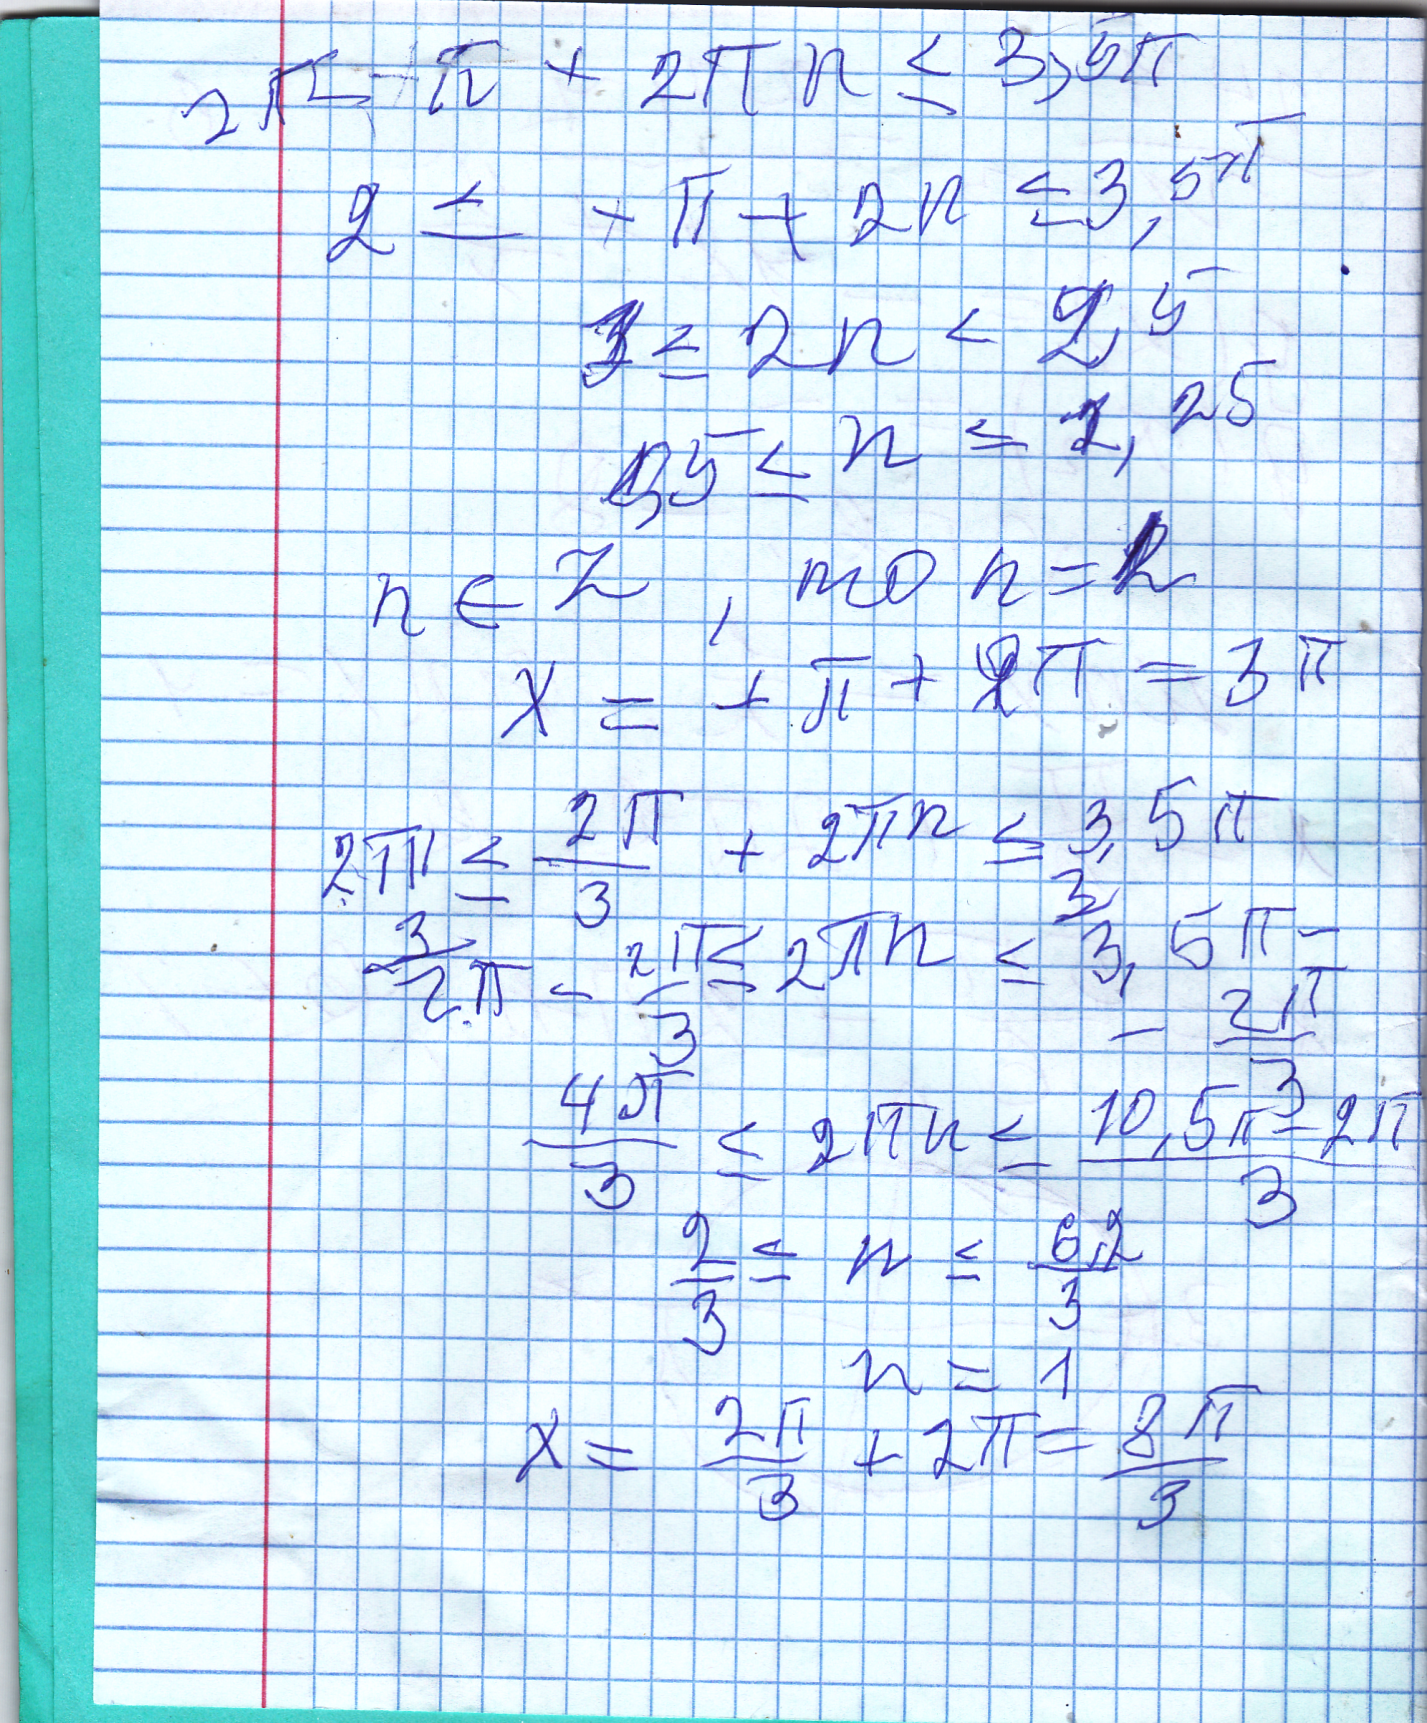 2π ≤ π + 2πn ≤ 3,5π
2 ≤ + π + 2n ≤ 3,5π
1 ≤ 2n < 2,5
0,5 ≤ n ≤ 1,25
n ∈ Z, то n = 1
x = + π + 2π = 3π
2π ≤ 2π/3 + 2πn ≤ 3,5π
2π - 2π/3 ≤ 2πn ≤ 3,5π -
- 2π/3
4π/3 ≤ 2πn ≤ (10,5π - 2π)/3
2/3 ≤ n ≤ 6,2/3
n = 1
x = 2π/3 + 2π = 8π/3